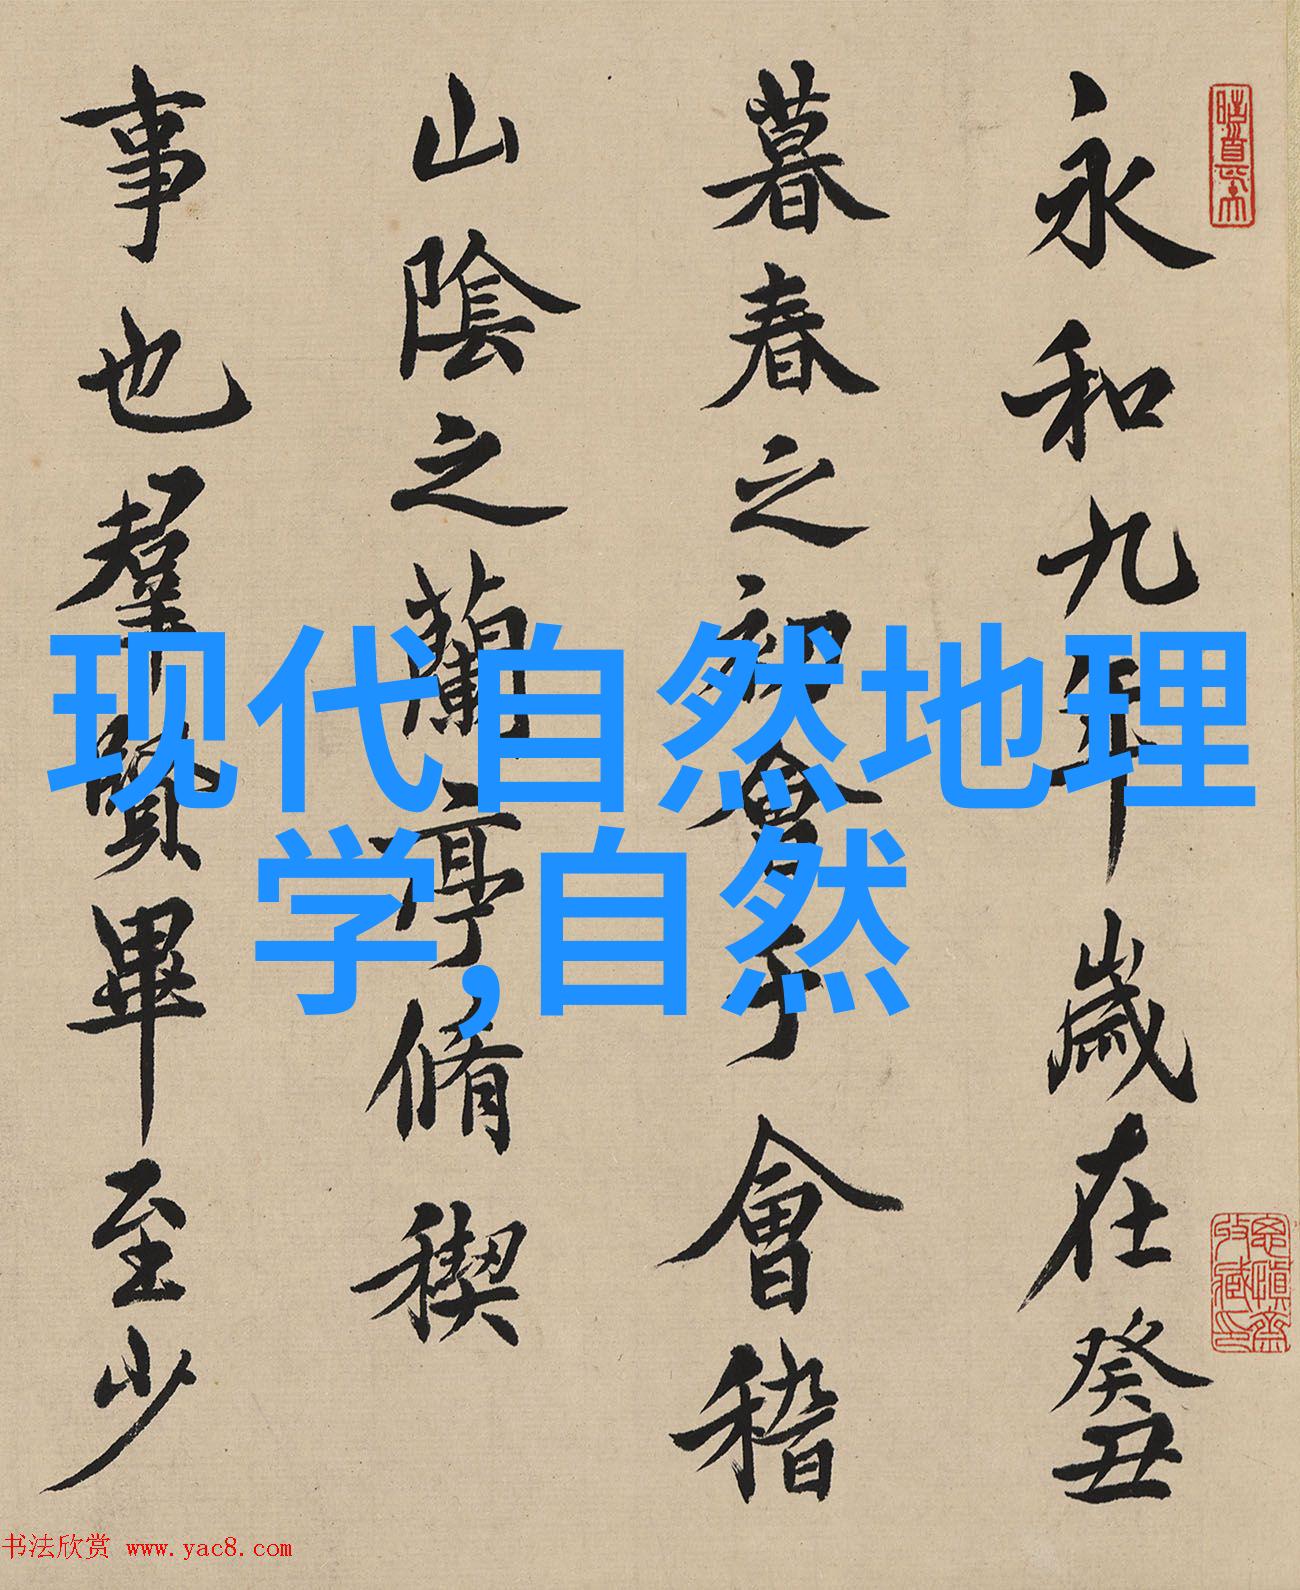 永和九年歲在癸丑
暮春之初會于會稽
山陰之蘭亭脩稧
事也羣賢畢至少
现代自然地理
学,自然
书法欣赏 www.yac8.com